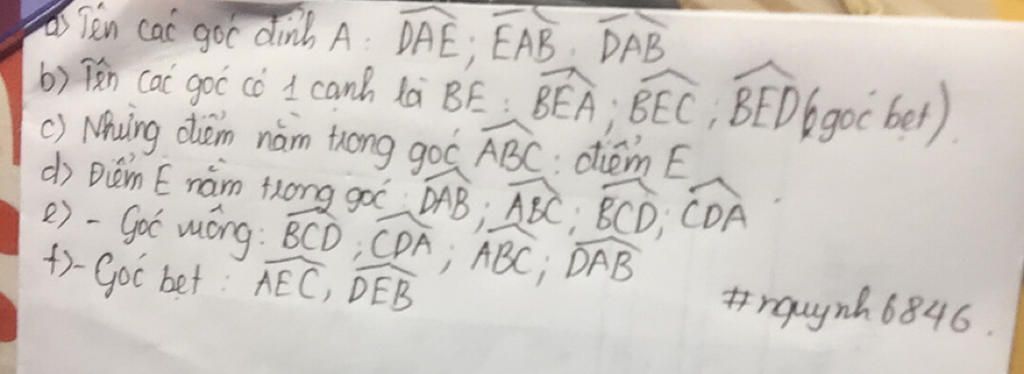 a) Tên các góc đỉnh A : DAE ; EAB . DAB
b) Tên các góc có 1 cạnh là BE : BEA ; BEC ; BED (góc bẹt).
c) Những điểm nằm trong góc ABC : điểm E
d) Điểm E nằm trong góc : DAB ; ABC ; BCD ; CDA
e) - Góc vuông : BCD ; CDA ; ABC ; DAB
f) - Góc bẹt : AEC, DEB
#nquynh6846.